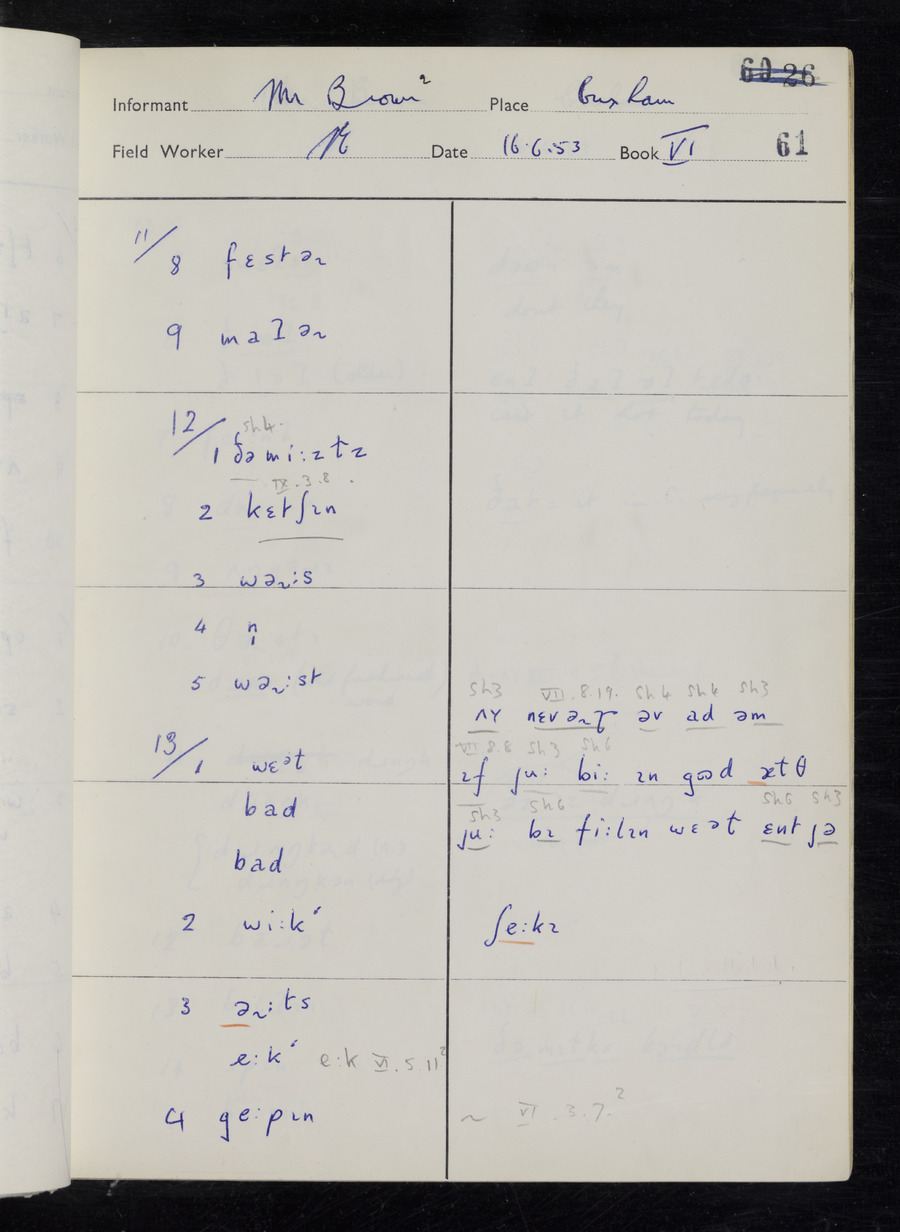 60 26
Informant Mr Brown² Place Buxham
Field Worker Date 16.6.53 Book VI 61
11/8 fɛstəɹ
9 matəɹ
12/1 ðəmiːztɪ
sh4.
IX.3.8.
2 kɛtʃɪn
3 wəɹːs
4 n̩
5 wəɹːst
13/1 wɛət
bad
bad
2 wiːkʻ
3 əɹːts
eːkʻ eːk VI.5.11²
4 geːpɪn
sh3 VII.8.19. sh4 sh4 sh3
ʌɪ nɛvəɹ əv ad əm
VIII.8.8 sh3 sh6
ɪf juː biː ɪn good ɛtθ
sh3 sh6 sh6 sh3
juː bɪ fiːlɪn wɛət ɛnt jə
ʃeːkɪ
~ VI.3.7.²